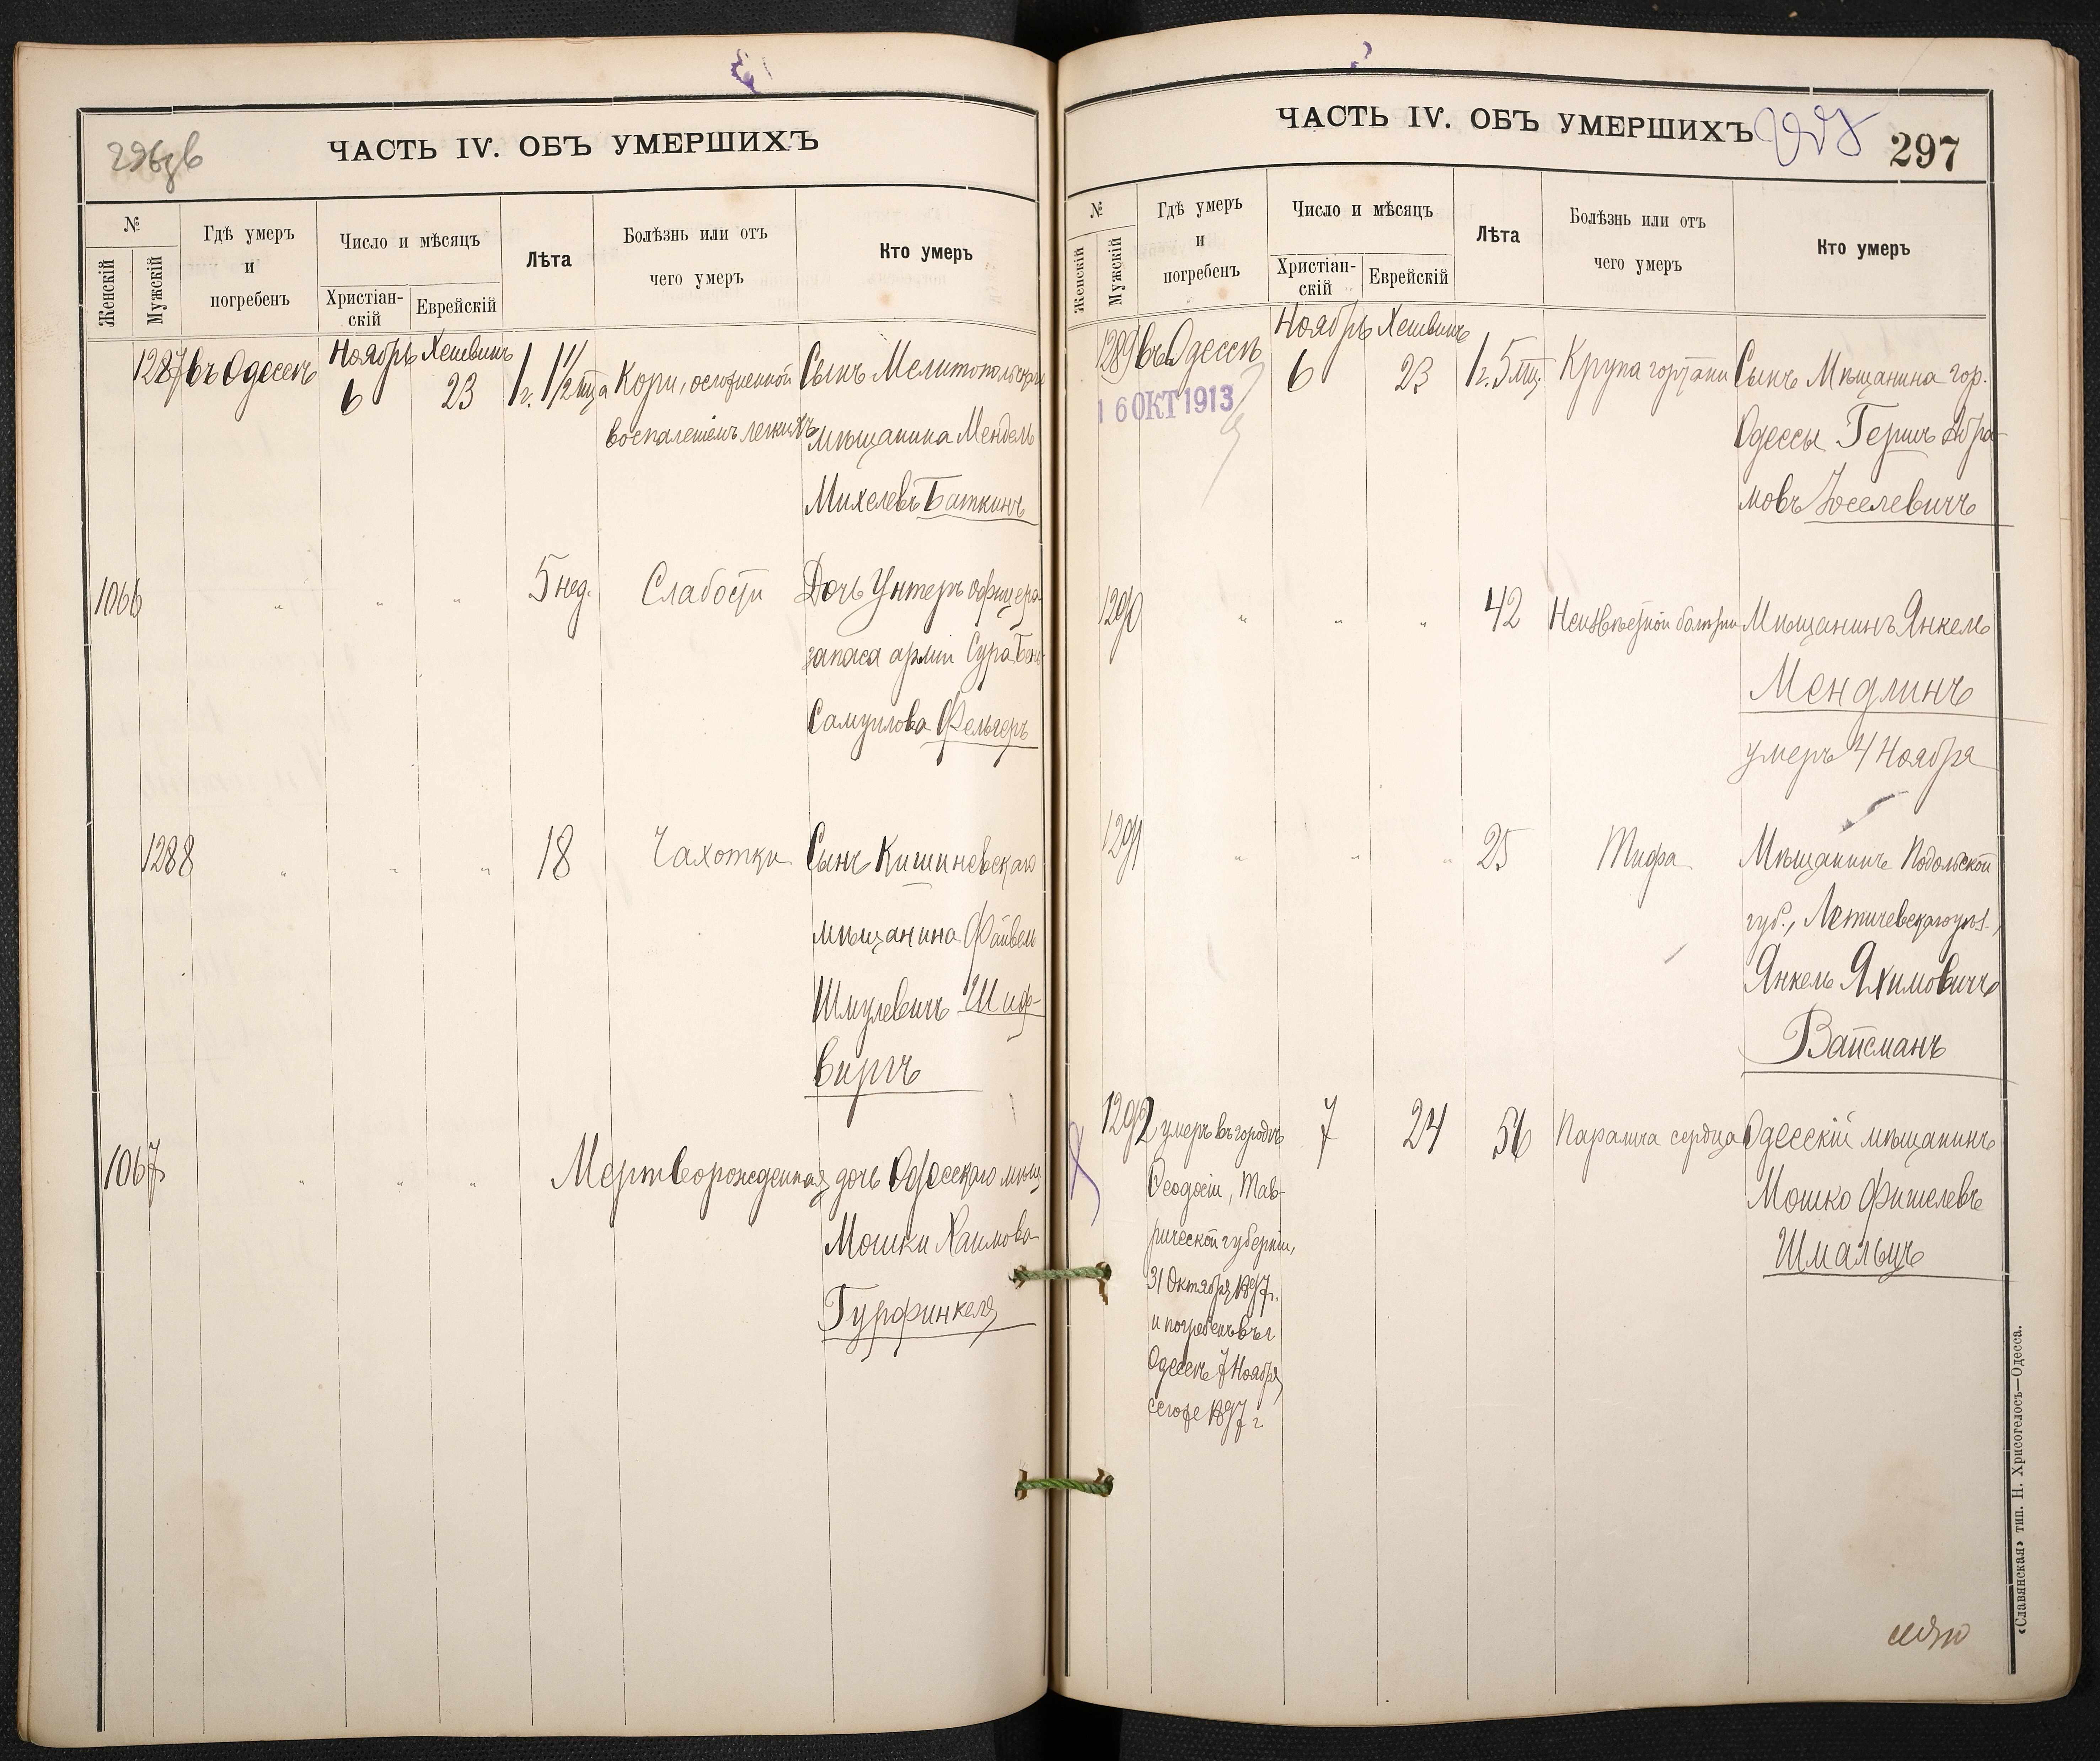 ЧАСТЬ IV. ОБЪ УМЕРШИХЪ
№
Женскій
Мужскій
Гдѣ умеръ
и
погребенъ
Число и мѣсяцъ
Христіан-
скій
Еврейскій
Лѣта
Болѣзнь или отъ
чего умеръ
Кто умеръ
1287 въ Одессѣ Ноябрь 6 Хешвинъ 23 1 г. 1 1/2 мца Кори, осложненной Сынъ Мелитопольскаго
воспаленіемъ легкихъ мѣщанина Мендель
Михелевъ Баткинъ
1066 " " " 5 нед. Слабости Дочь Унтеръ офицера
запаса арміи Сура
Самуилова Фельгеръ
1288 " " " 18 Чахотки Сынъ Кишиневскаго
мѣщанина Файвель
Шмулевичъ Шиф-
виргъ
1067 " " " Мертворожденная дочь Одесскаго мѣщ
Мошки Хаимова
Гурфинкеля
ЧАСТЬ IV. ОБЪ УМЕРШИХЪ
297
№
Женскій
Мужскій
Гдѣ умеръ
и
погребенъ
Число и мѣсяцъ
Христіан-
скій
Еврейскій
Лѣта
Болѣзнь или отъ
чего умеръ
Кто умеръ
1289 въ Одессѣ Ноябрь 6 Хешвинъ 23 1 г. 5 мц. Крупа гортани Сынъ Мѣщанина гор.
16 ОКТ 1913
Одессы Гершъ Абра-
мовъ Іоселевичъ
1290 " " " 42 Неизвѣстной болѣзни Мѣщанинъ Янкель
Мендлинъ
умеръ 4 Ноября
1291 " " " 25 Тифа Мѣщанинъ Подольской
губ., Летичевскаго уѣз.,
Янкель Яхимовичъ
Вайсманъ
1292 умеръ въ городѣ 7 24 56 Паралича сердца Одесскій мѣщанинъ
Ѳеодосіи, Тав-
рической губерніи,
31 Октября 1897 г.
и погребенъ въ г
Одессѣ 7 Ноября
сего же 1897 г
Мошко Фишелевъ
Шмальцъ
«Славянская» тип. Н. Хрисогелосъ—Одесса.